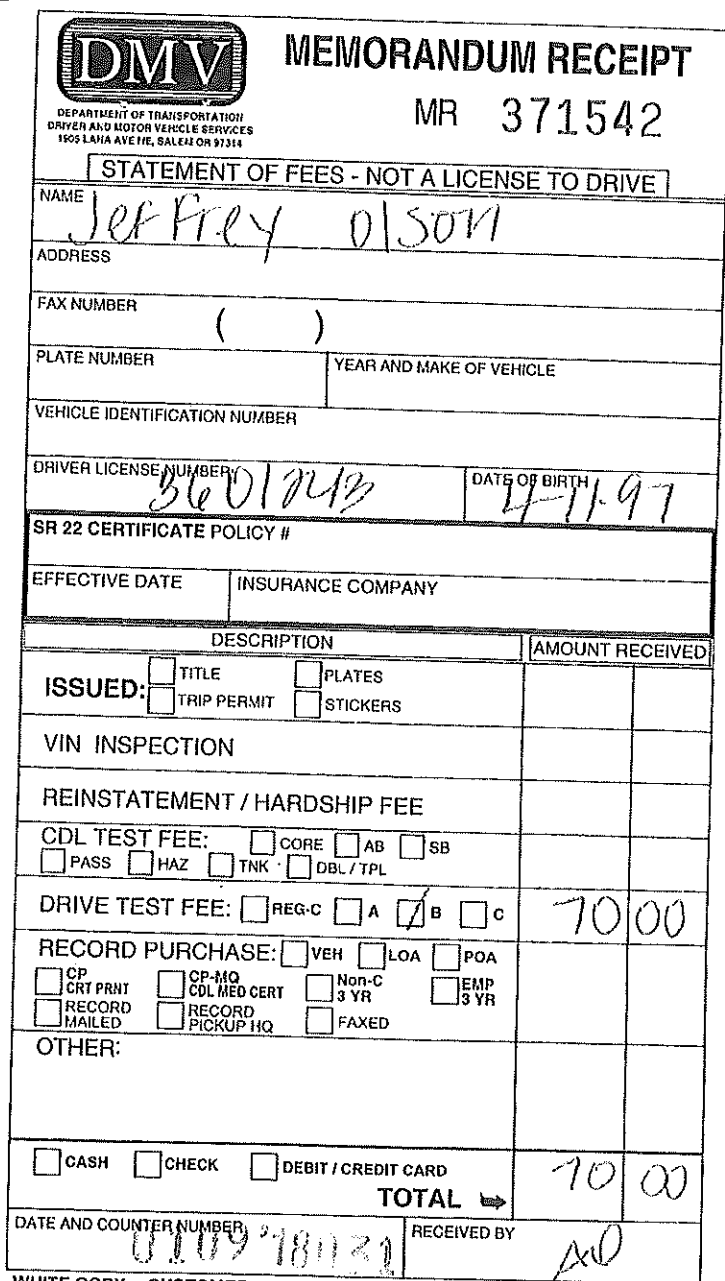 DMV
MEMORANDUM RECEIPT
DEPARTMENT OF TRANSPORTATION
DRIVER AND MOTOR VEHICLE SERVICES
1905 LANA AVE NE, SALEM OR 97314
MR 371542
STATEMENT OF FEES - NOT A LICENSE TO DRIVE
NAME
Jeffrey Olson
ADDRESS
FAX NUMBER
( )
PLATE NUMBER YEAR AND MAKE OF VEHICLE
VEHICLE IDENTIFICATION NUMBER
DRIVER LICENSE NUMBER DATE OF BIRTH
4-11-97
SR 22 CERTIFICATE POLICY #
EFFECTIVE DATE INSURANCE COMPANY
DESCRIPTION AMOUNT RECEIVED
ISSUED: TITLE PLATES
TRIP PERMIT STICKERS
VIN INSPECTION
REINSTATEMENT / HARDSHIP FEE
CDL TEST FEE: CORE AB SB
PASS HAZ TNK DBL / TPL
DRIVE TEST FEE: REG-C A B C 70 00
RECORD PURCHASE: VEH LOA POA
CP CP-MQ Non-C EMP
CRT PRNT CDL MED CERT 3 YR 3 YR
RECORD RECORD FAXED
MAILED PICKUP HQ
OTHER:
CASH CHECK DEBIT / CREDIT CARD 70 00
TOTAL
DATE AND COUNTER NUMBER RECEIVED BY